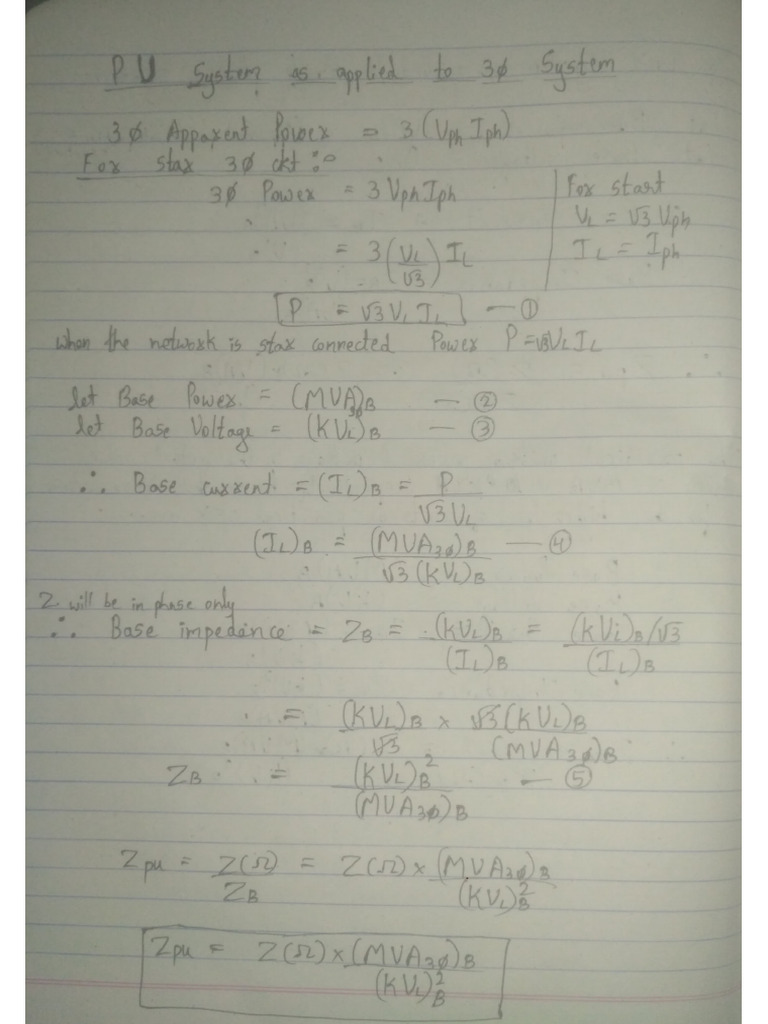 PU System as applied to 3ϕ System
3ϕ Apparent Power = 3(Vph Iph)
For star 3ϕ ckt :-
3ϕ Power = 3 Vph Iph
For start
VL = √3 Vph
IL = Iph
= 3(VL/√3) IL
P = √3 VL IL — ①
when the network is star connected Power P = √3VL IL
let Base Power = (MVA3ϕ)B — ②
let Base Voltage = (KVL)B — ③
∴ Base current = (IL)B = P/√3 VL
(IL)B = (MVA3ϕ)B/√3 (KVL)B — ④
Z will be in phase only
∴ Base impedance = ZB = (KVL)B/(IL)B = (KVL)B/√3/(IL)B
= (KVL)B/√3 × √3(KVL)B/(MVA3ϕ)B
ZB = (KVL)B²/(MVA3ϕ)B — ⑤
Zpu = Z(Ω)/ZB = Z(Ω) × (MVA3ϕ)B/(KVL)B²
Zpu = Z(Ω) × (MVA3ϕ)B/(KVL)B²